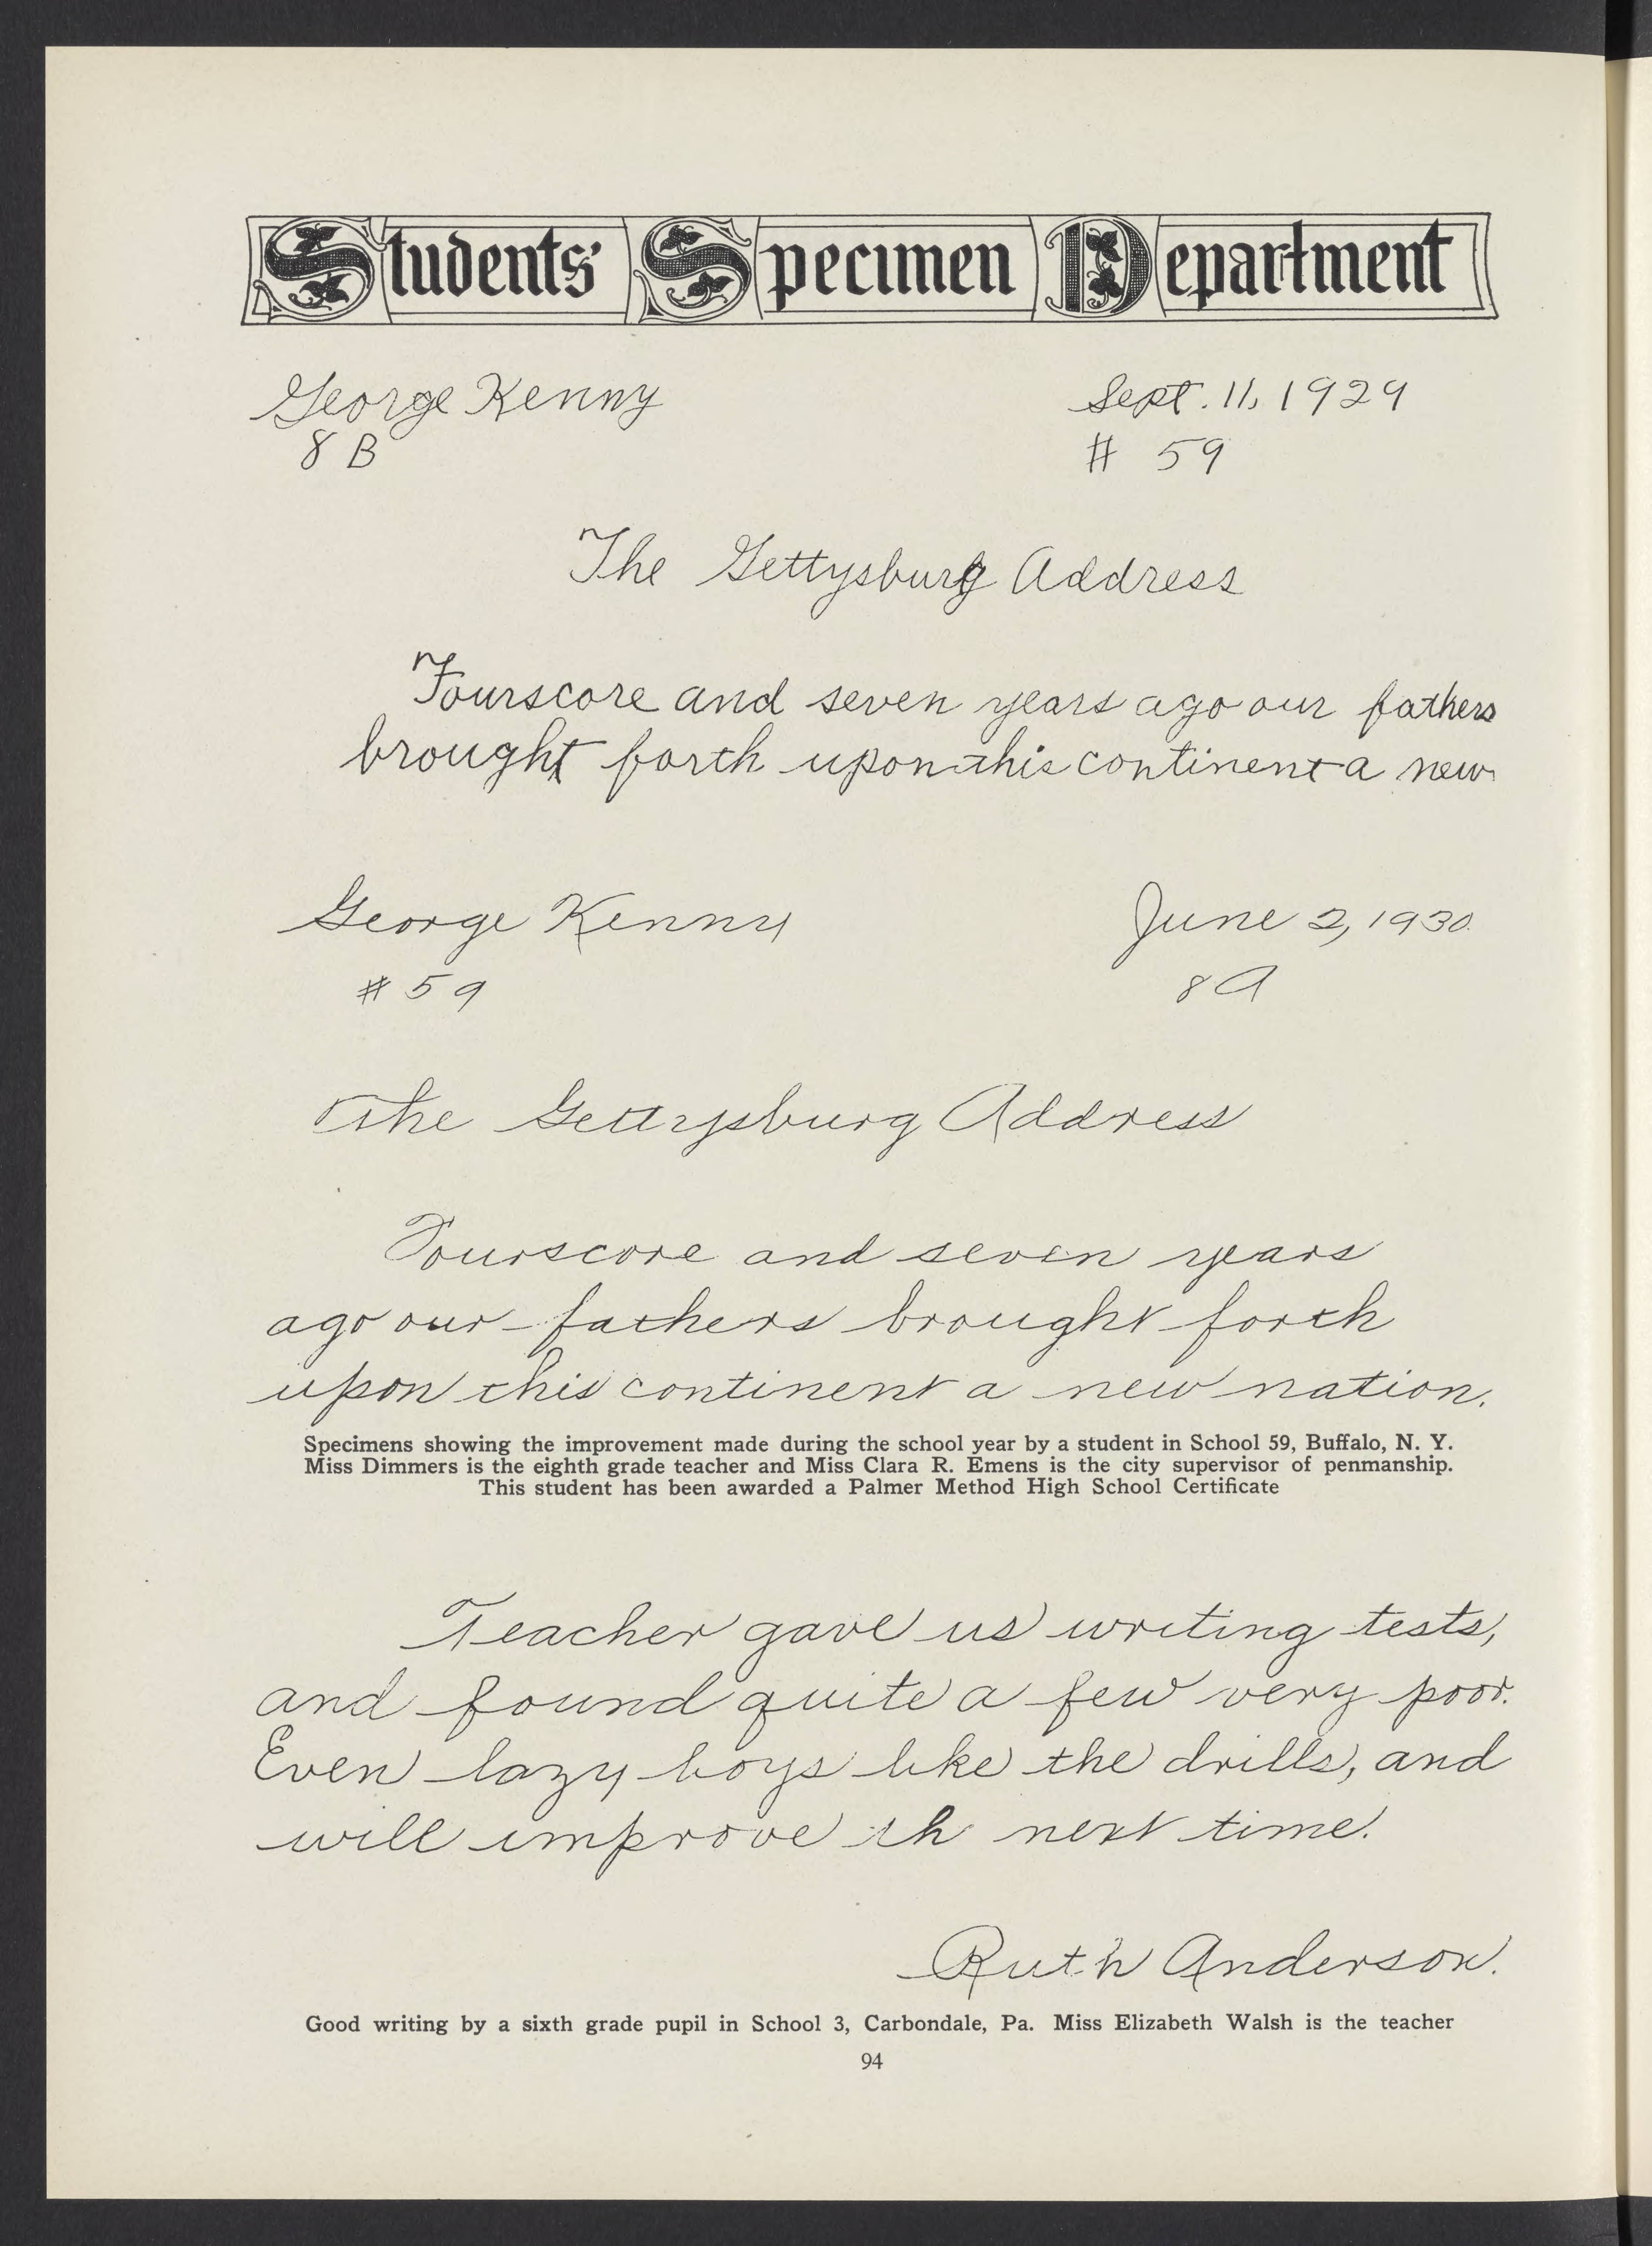 Students' Specimen Department
George Kenny Sept. 11, 1929
8 B # 59
The Gettysburg Address
Fourscore and seven years ago our fathers
brought forth upon this continent a new
George Kenny June 2, 1930.
# 59 8A
The Gettysburg Address
Fourscore and seven years
ago our fathers brought forth
upon this continent a new nation.
Specimens showing the improvement made during the school year by a student in School 59, Buffalo, N. Y.
Miss Dimmers is the eighth grade teacher and Miss Clara R. Emens is the city supervisor of penmanship.
This student has been awarded a Palmer Method High School Certificate
Teacher gave us writing tests,
and found quite a few very poor.
Even lazy boys like the drills, and
will improve th next time.
Ruth Anderson.
Good writing by a sixth grade pupil in School 3, Carbondale, Pa. Miss Elizabeth Walsh is the teacher
94